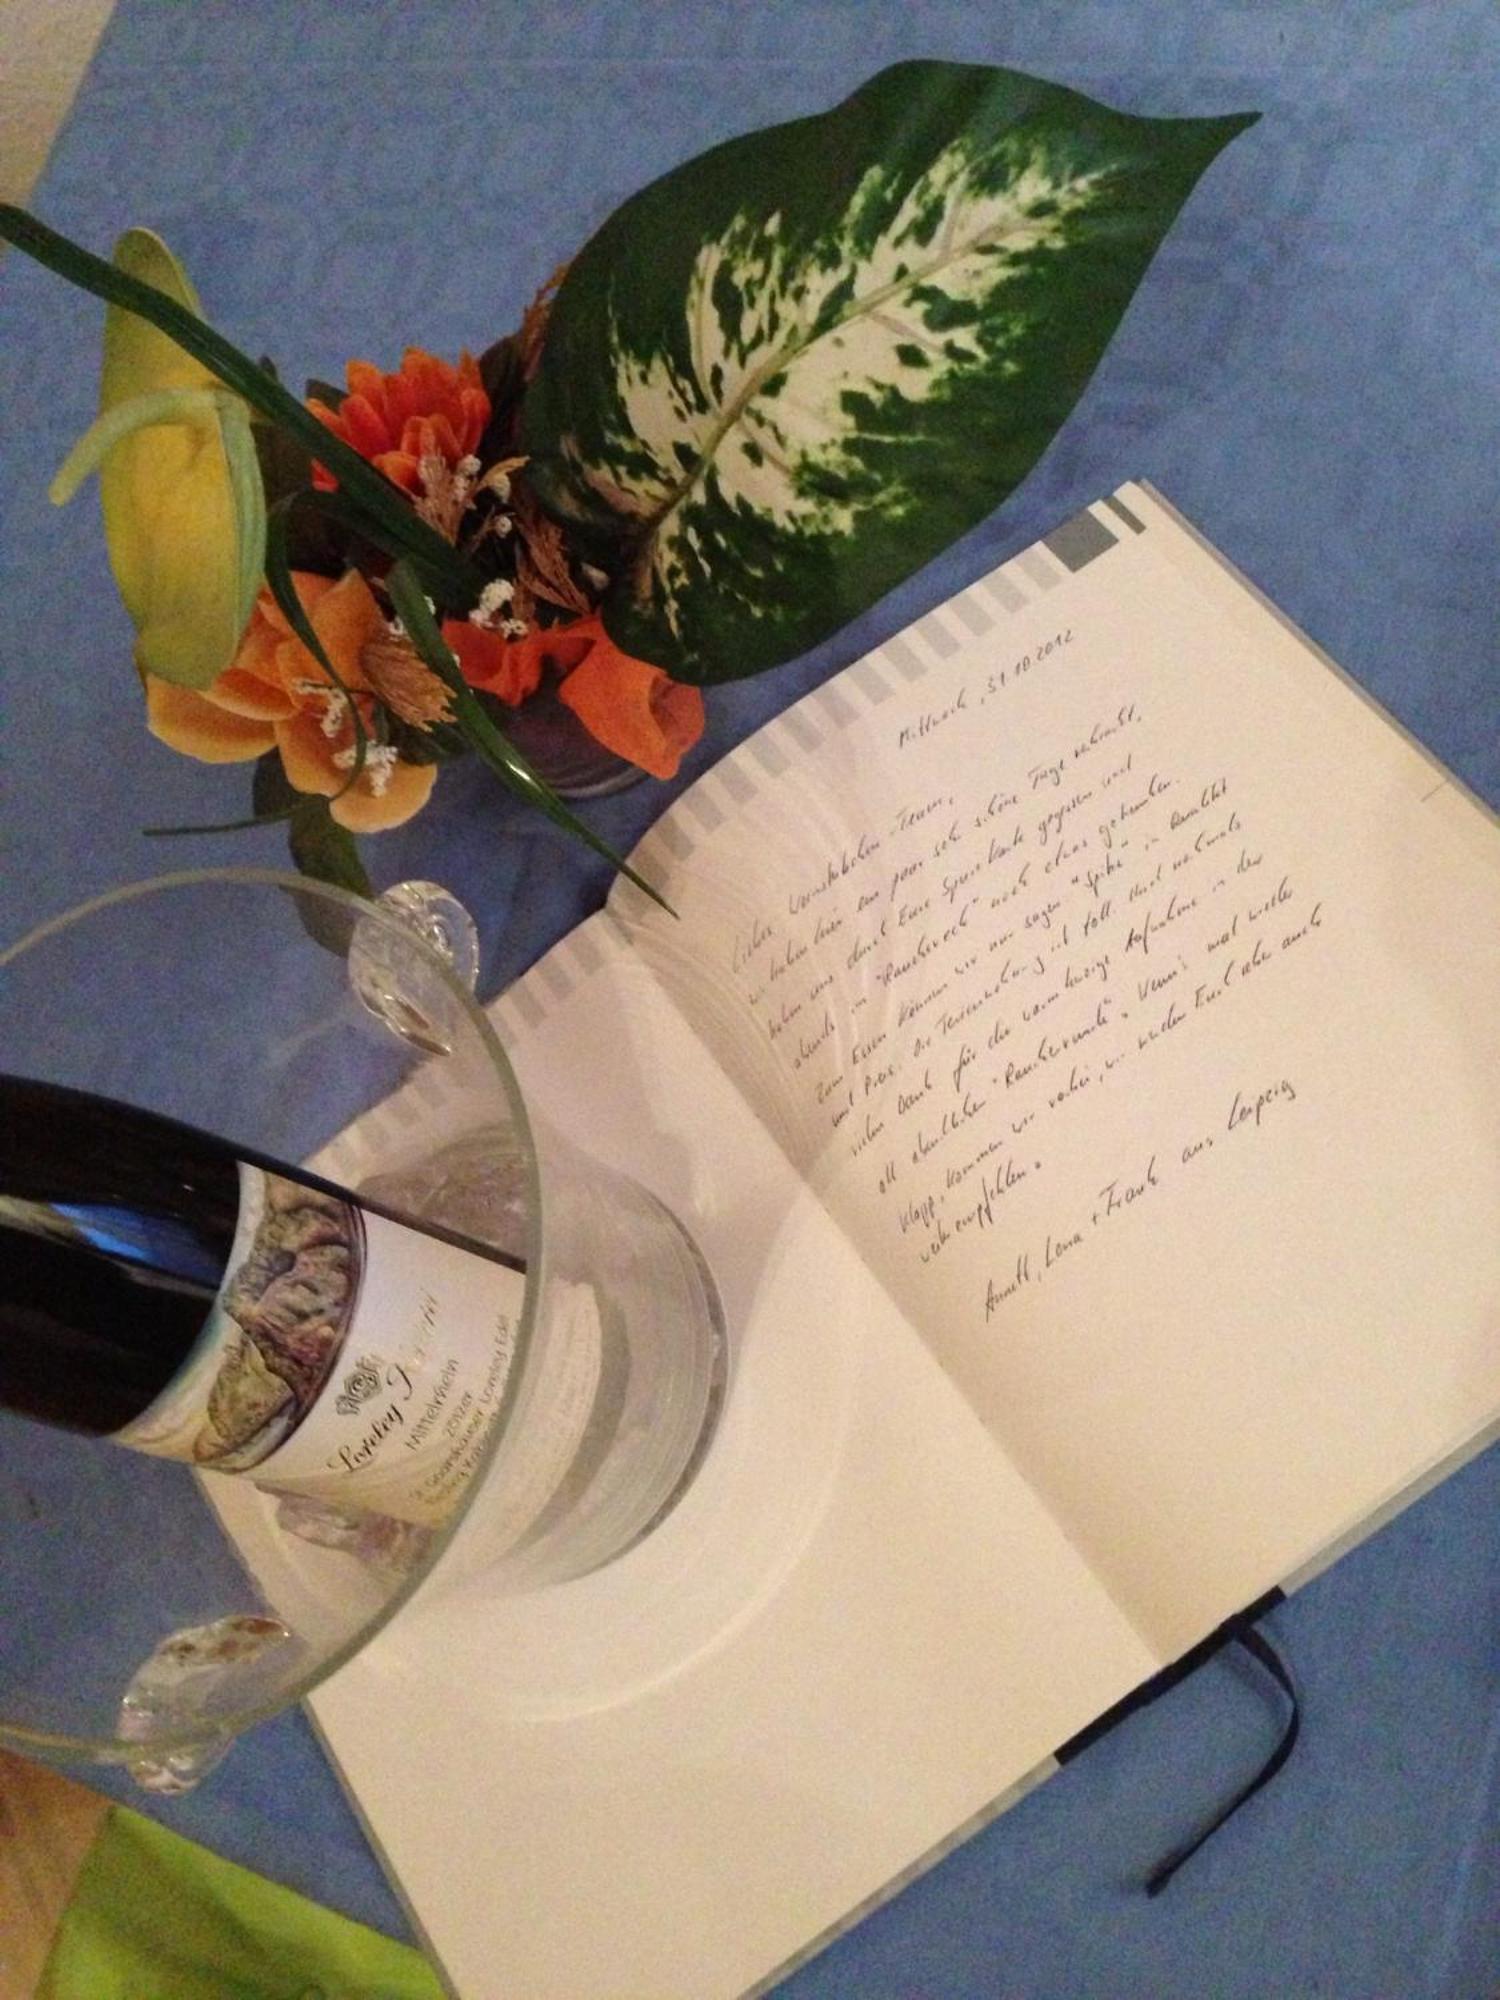 Mittwoch, 31.10.2012
Liebes Weinstübchen-Team,
wir haben hier ein paar sehr schöne Tage verbracht,
haben uns durch Eure Speisekarte gegessen und
abends im "Rauchereck" noch etwas getrunken.
Zum Essen können wir nur sagen "Spitze" in Qualität
und Preis. Die Ferienwohnung ist toll. Und nochmals
vielen Dank für die warmherzige Aufnahme in der
all abendlichen "Raucherrunde". Wenn's mal wieder
klappt, kommen wir vorbei, wir werden Euch aber auch
weiterempfehlen.
Annett, Lena + Frank aus Leipzig
Loreley
Mittelrhein
2012er
St. Goarshauser Loreley Edel
Riesling